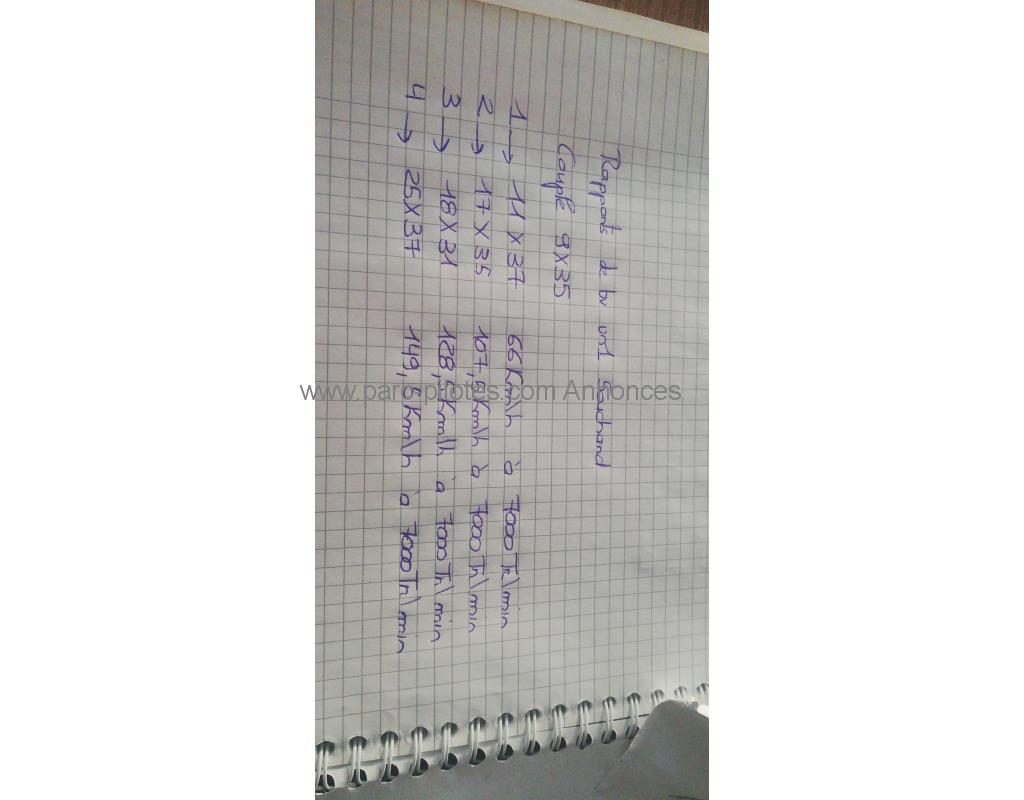 Rapports de bv un1 Sachand
Couple 9X35
1 → 11 X 37 66 Km\h à 7000 Tr\min
2 → 17 X 35 107,5 Km\h à 7000 Tr\min
3 → 18 X 31 128,5 Km\h à 7000 Tr\min
4 → 25 X 37 149,5 Km\h à 7000 Tr\min
www.parc-pilotes.com Annonces